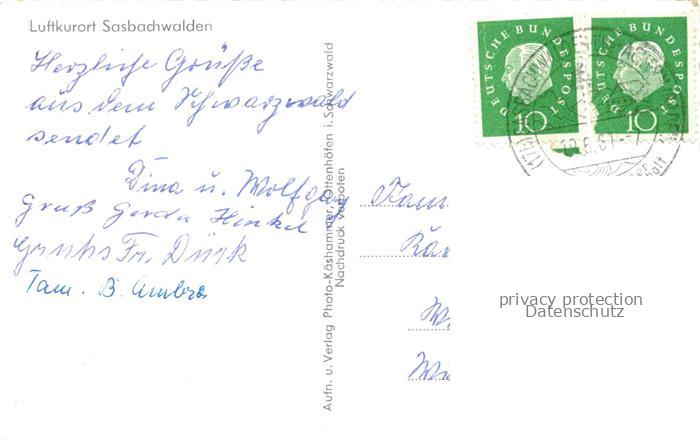 Luftkurort Sasbachwalden
Herzliche Grüße
aus dem Schwarzwald
sendet
Dina u. Wolfgang
Gruß Gerda Hinkel
Gruhs Fr. Dürk
Fam. B. Ambros
Aufn. u. Verlag Photo-Käshammer, Ottenhöfen i. Schwarzwald
Nachdruck verboten
DEUTSCHE BUNDESPOST
10
DEUTSCHE BUNDESPOST
10
privacy protection
Datenschutz